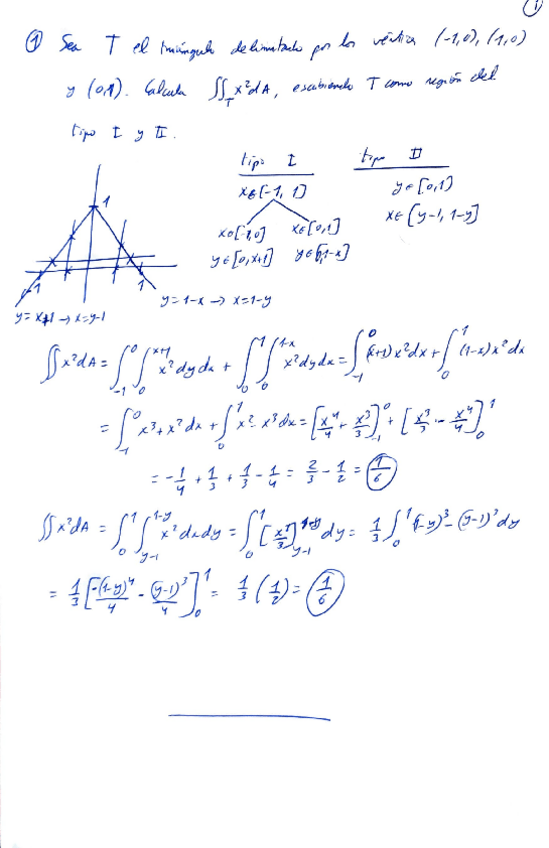 1
① Sea T el triángulo delimitado por los vértices (-1,0), (1,0)
y (0,1). Calcula ∬_T x²dA, escribiendo T como región del
tipo I y II.
tipo I
tipo II
x∈[-1, 1]
y∈[0,1]
x∈[-1,0] x∈[0,1]
x∈[y-1, 1-y]
y∈[0,x+1] y∈[0,1-x]
1
-1
1
y=1-x → x=1-y
y=x+1 → x=y-1
∬x²dA = ∫_{-1}^{0} ∫_{0}^{x+1} x² dy dx + ∫_{0}^{1} ∫_{0}^{1-x} x² dy dx = ∫_{-1}^{0} (x+1)x² dx + ∫_{0}^{1} (1-x)x² dx
= ∫_{-1}^{0} x³+x² dx + ∫_{0}^{1} x²-x³ dx = [x⁴/4 + x³/3]_{-1}^{0} + [x³/3 - x⁴/4]_{0}^{1}
= -1/4 + 1/3 + 1/3 - 1/4 = 2/3 - 1/2 = 1/6
∬x²dA = ∫_{0}^{1} ∫_{y-1}^{1-y} x² dx dy = ∫_{0}^{1} [x³/3]_{y-1}^{1-y} dy = 1/3 ∫_{0}^{1} (1-y)³ - (y-1)³ dy
= 1/3 [-(1-y)⁴/4 - (y-1)³/4]_{0}^{1} = 1/3 (1/2) = 1/6